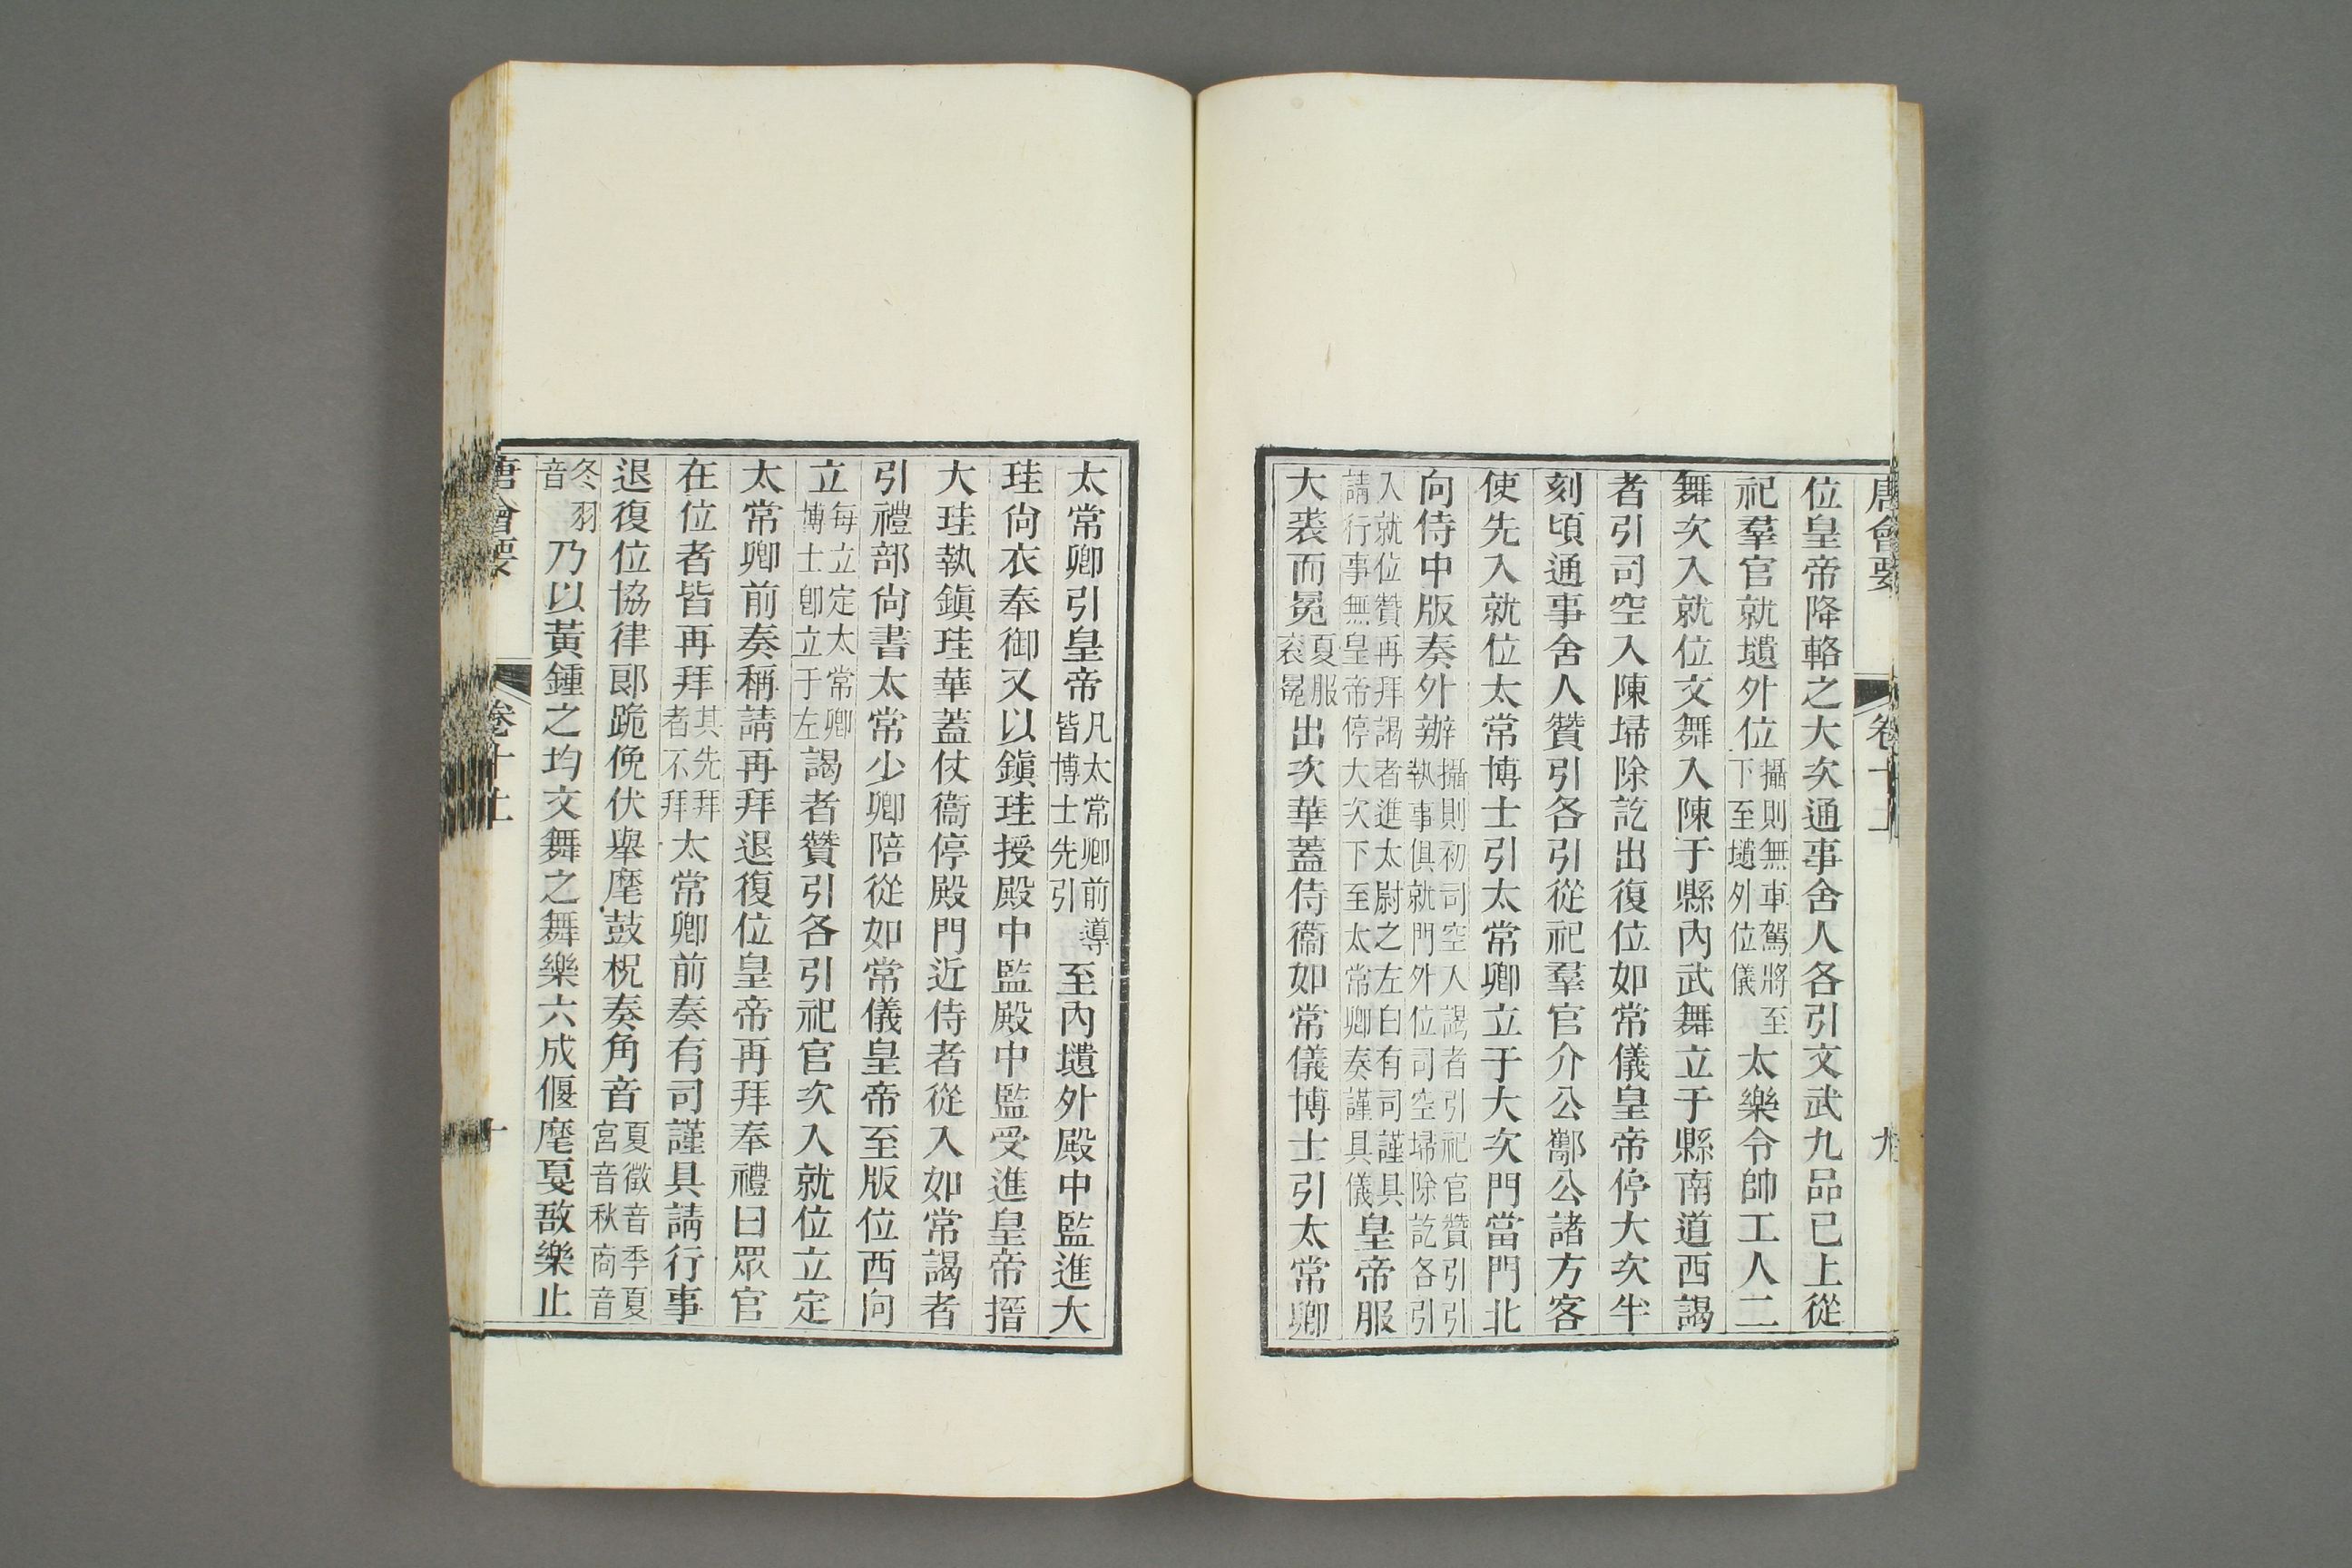 唐會要 卷十上 九
位皇帝降輅之大次通事舍人各引文武九品已上從
祀羣官就壝外位攝則無車駕將至下至壝外位儀太樂令帥工人二
舞次入就位文舞入陳于縣內武舞立于縣南道西謁
者引司空入陳埽除訖出復位如常儀皇帝停大次半
刻頃通事舍人贊引各引從祀羣官介公酅公諸方客
使先入就位太常博士引太常卿立于大次門當門北
向侍中版奏外辦攝則初司空入謁者引祀官贊引引執事俱就門外位司空埽除訖各引
入就位贊再拜謁者進太尉之左白有司謹具請行事無皇帝停大次下至太常卿奏謹具儀皇帝服
大裘而冕夏服袞冕出次華蓋侍衞如常儀博士引太常卿
太常卿引皇帝凡太常卿前導皆博士先引至內壝外殿中監進大
珪尙衣奉御又以鎭珪授殿中監殿中監受進皇帝搢
大珪執鎭珪華蓋仗衞停殿門近侍者從入如常謁者
引禮部尙書太常少卿陪從如常儀皇帝至版位西向
立每立定太常卿博士卽立于左謁者贊引各引祀官次入就位立定
太常卿前奏稱請再拜退復位皇帝再拜奉禮曰眾官
在位者皆再拜其先拜者不拜太常卿前奏有司謹具請行事
退復位協律郞跪俛伏舉麾鼓柷奏角音夏徵音季夏宮音秋商音
冬羽音乃以黃鍾之均文舞之舞樂六成偃麾戛敔樂止
唐會要 卷十上 十